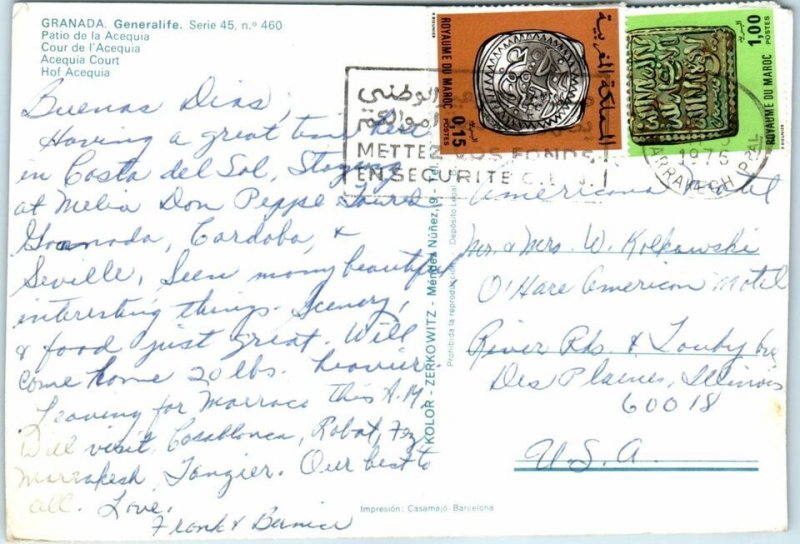 GRANADA. Generalife. Serie 45, n.º 460
Patio de la Acequia
Cour de l'Acequia
Acequia Court
Hof Acequia
Buenas Dias,
Having a great time
in Costa del Sol, Staying
at Melia Don Peppe. Toured
Granada, Cordoba, &
Seville, Seen many beautiful
interesting things. Scenery,
& food just great. Will
come home 20 lbs. heavier
Leaving for Marraco this A.M
Will visit, Casablanca, Rabat, Fez
Marrakesh, Tangier. Our best to
all. Love,
Frank & Bernice
KOLOR - ZERKOWITZ - Méndez Núñez, 9 - Tel.
Prohibida la reproducción
Depósito Legal
Impresión: Casamajó. Barcelona
ROYAUME DU MAROC
المملكة المغربية
0,15
POSTES
البريد
1,00
POSTES
البريد
ROYAUME DU MAROC
الوطني
METTEZ VOS FONDS
EN SECURITE C.E.N.
1976
MARRAKECH PPAL
Americana Motel
Mr. & Mrs. W. Kolkowski
O'Hare American Motel
River Rds &
Des Plaines, Illinois
60018
U.S.A.